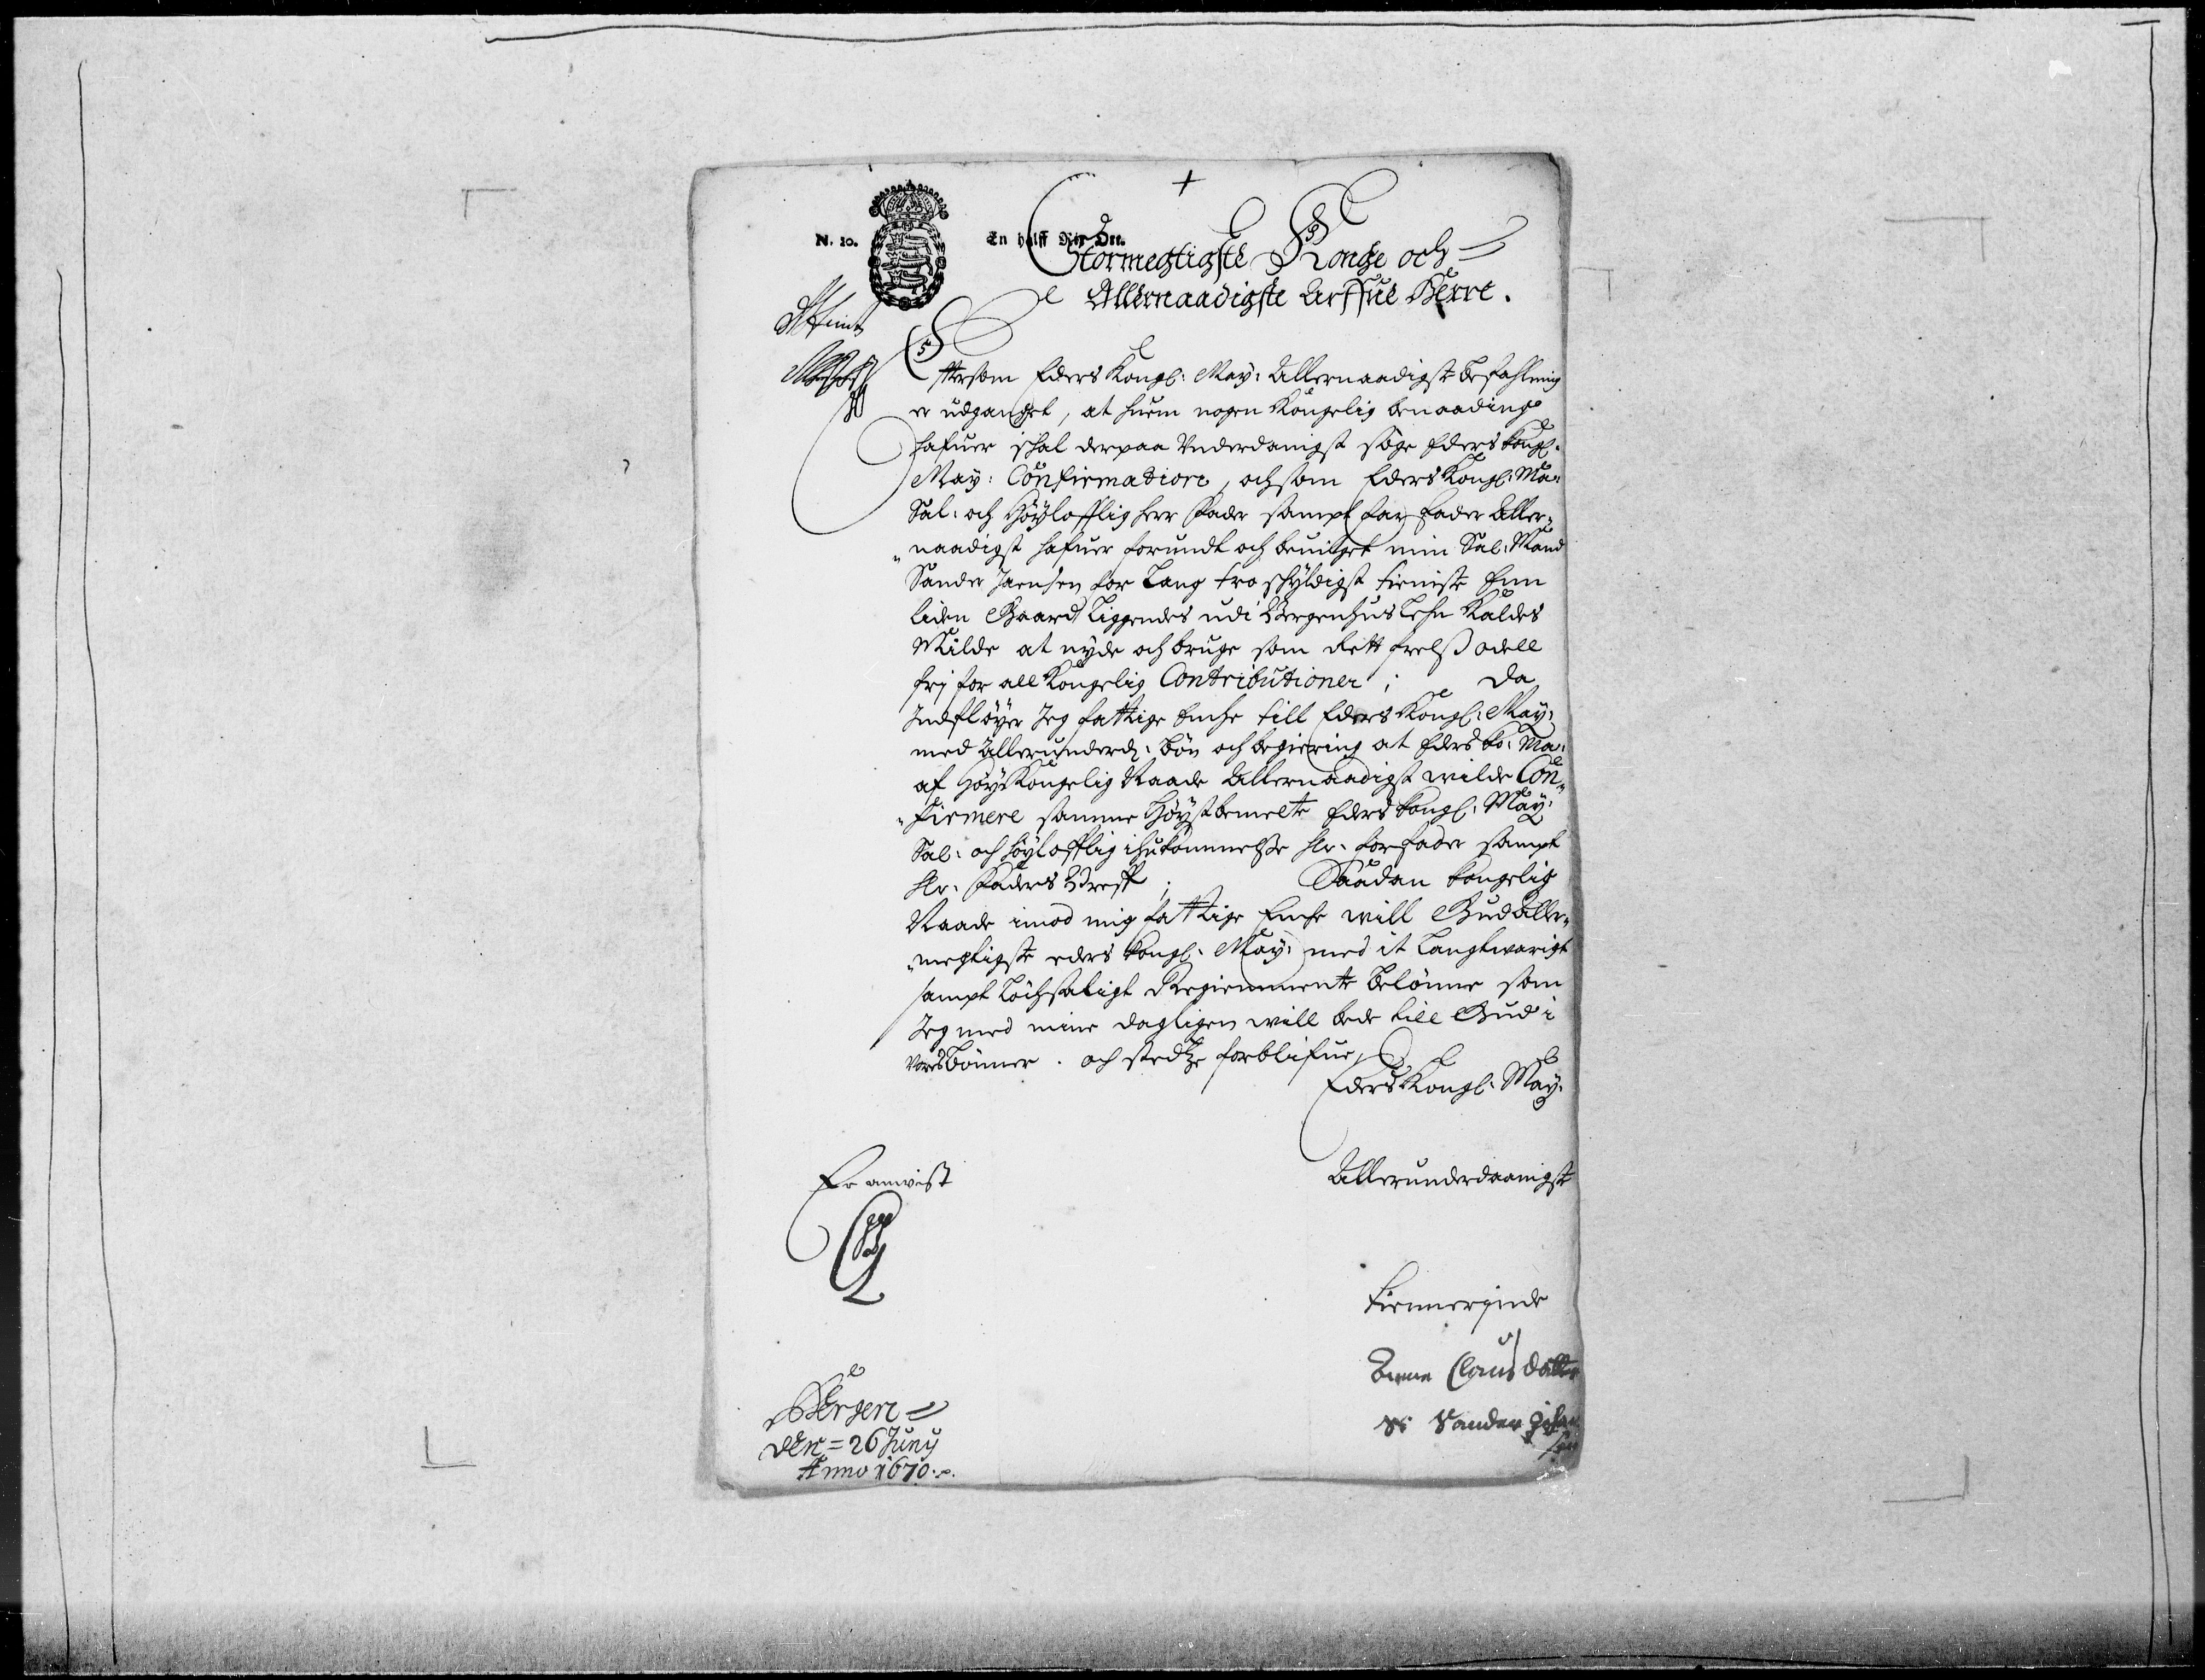 N. 10.
En halff Rix Ort.
Stormegtigste Konge och
Allernaadigste Arffue Herre.
Eftersom Eders Kongl: May: Allernaadigste befahling
er udganget, at huem nogen Kongelig benaading
hafuer schal derpaa Underdanigst søge Eders Kongl:
May: Confirmation, och som Eders Kongl: Ma:
Sal: och Høyloflig Herr Fader sampt Farfader Aller„
„naadigst hafuer forundt och beuilget min Sal: Mand
Sander Jaensen for Lang tro schyldigst tieniste Enn
liden Gaard Liggendes udi Bergenhus Lehn Kaldes
Milde at nyde och bruge som Rett frelß odell
frj for all Kongelig Contributioner; Da
Indfløyer Jeg fattige Enche till Eders Kongl: May:
med Allerunderd: bøn och begiering at Eders Ko: Ma:
af Høy Kongelig Naade Allernaadigst wilde Con„
„firmere samme Høystbemelte Eders Kongl: May:
Sal: och høyloflig ihukommelße Hr. Forfader sampt
Hr. Faders Breff; Saadan Kongelig
Naade imod mig fattige Enche will Gud Aller„
„megtigste eders Kongl: May: med it Langtwarigt
sampt Löchsaligt Regiemente Belønne som
Jeg med mine dagligen will bede till Gud i
vores Bønner. och stedtze forblifue,
Eders Kongl: May:
Allerunderdaanigste
Er anvist
Tiennerinde
Clausdatter
Sander
Bergen
den = 26 Juny
Anno 1670.